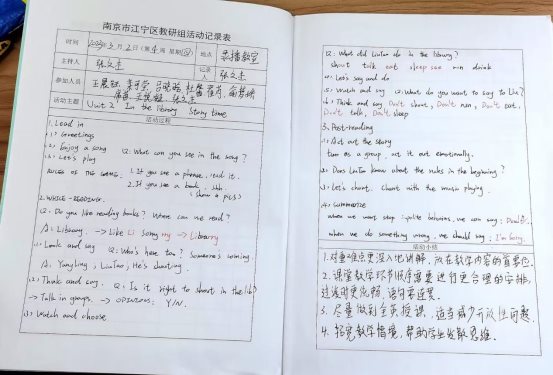 南京市江宁区教研组活动记录表
时间 2023年3月2日(第4周 星期四) 地点 录播教室
主持人 张文杰 记录人 张文杰
参加人员 王晨钰
活动主题 Unit 2 In the library Story time
活动过程
1. Lead in
(1) Greetings
(2) Enjoy a song Q: What can you see in the song?
(3) Let's play
RULES OF THE GAME: 1. If you see a phrase, read it.
2. If you see a book, shh.
(show 4 pics)
2. WHILE-READING.
Q: Do you like reading books? Where can we read?
A: Library. → Like Li Sorry ry → Library
(1) Look and say Q: Who's here too? Someone's coming
A: Yangling, LiuTao, He's shouting.
(2) Think and say. Q: Is it right to shout in the lib?
→ Talk in groups. → OPINIONS: Y/N.
(3) Watch and choose
Q: What did LiuTao do in the library?
shout talk eat sleep see run drink
(4) Let's say and do
(5) Watch and say Q: What do you want to say to Liu?
(6) Think and say Don't shout, Don't run, Don't eat,
Don't talk, Don't sleep
3. Post-reading
(1) Act out the story
Four as a group, act it out emotionally.
(2) Does LiuTao know about the rules in the beginning?
(3) Let's chant. Chant with the music playing.
4. Summarize
when we want stop impolite behaviors, we can say: Don't!
when we do something wrong, we should say: I'm sorry.
活动小结
1. 对重难点更深入地讲解,放在教学内容的首要位
2. 课堂教学环节顺序需要进行更合理的安排,
过渡时更优畅,语句要连贯.
3. 尽量做到全英授课,适当减少开放性问题.
4. 拓宽教学情境,帮助学生发散思维.